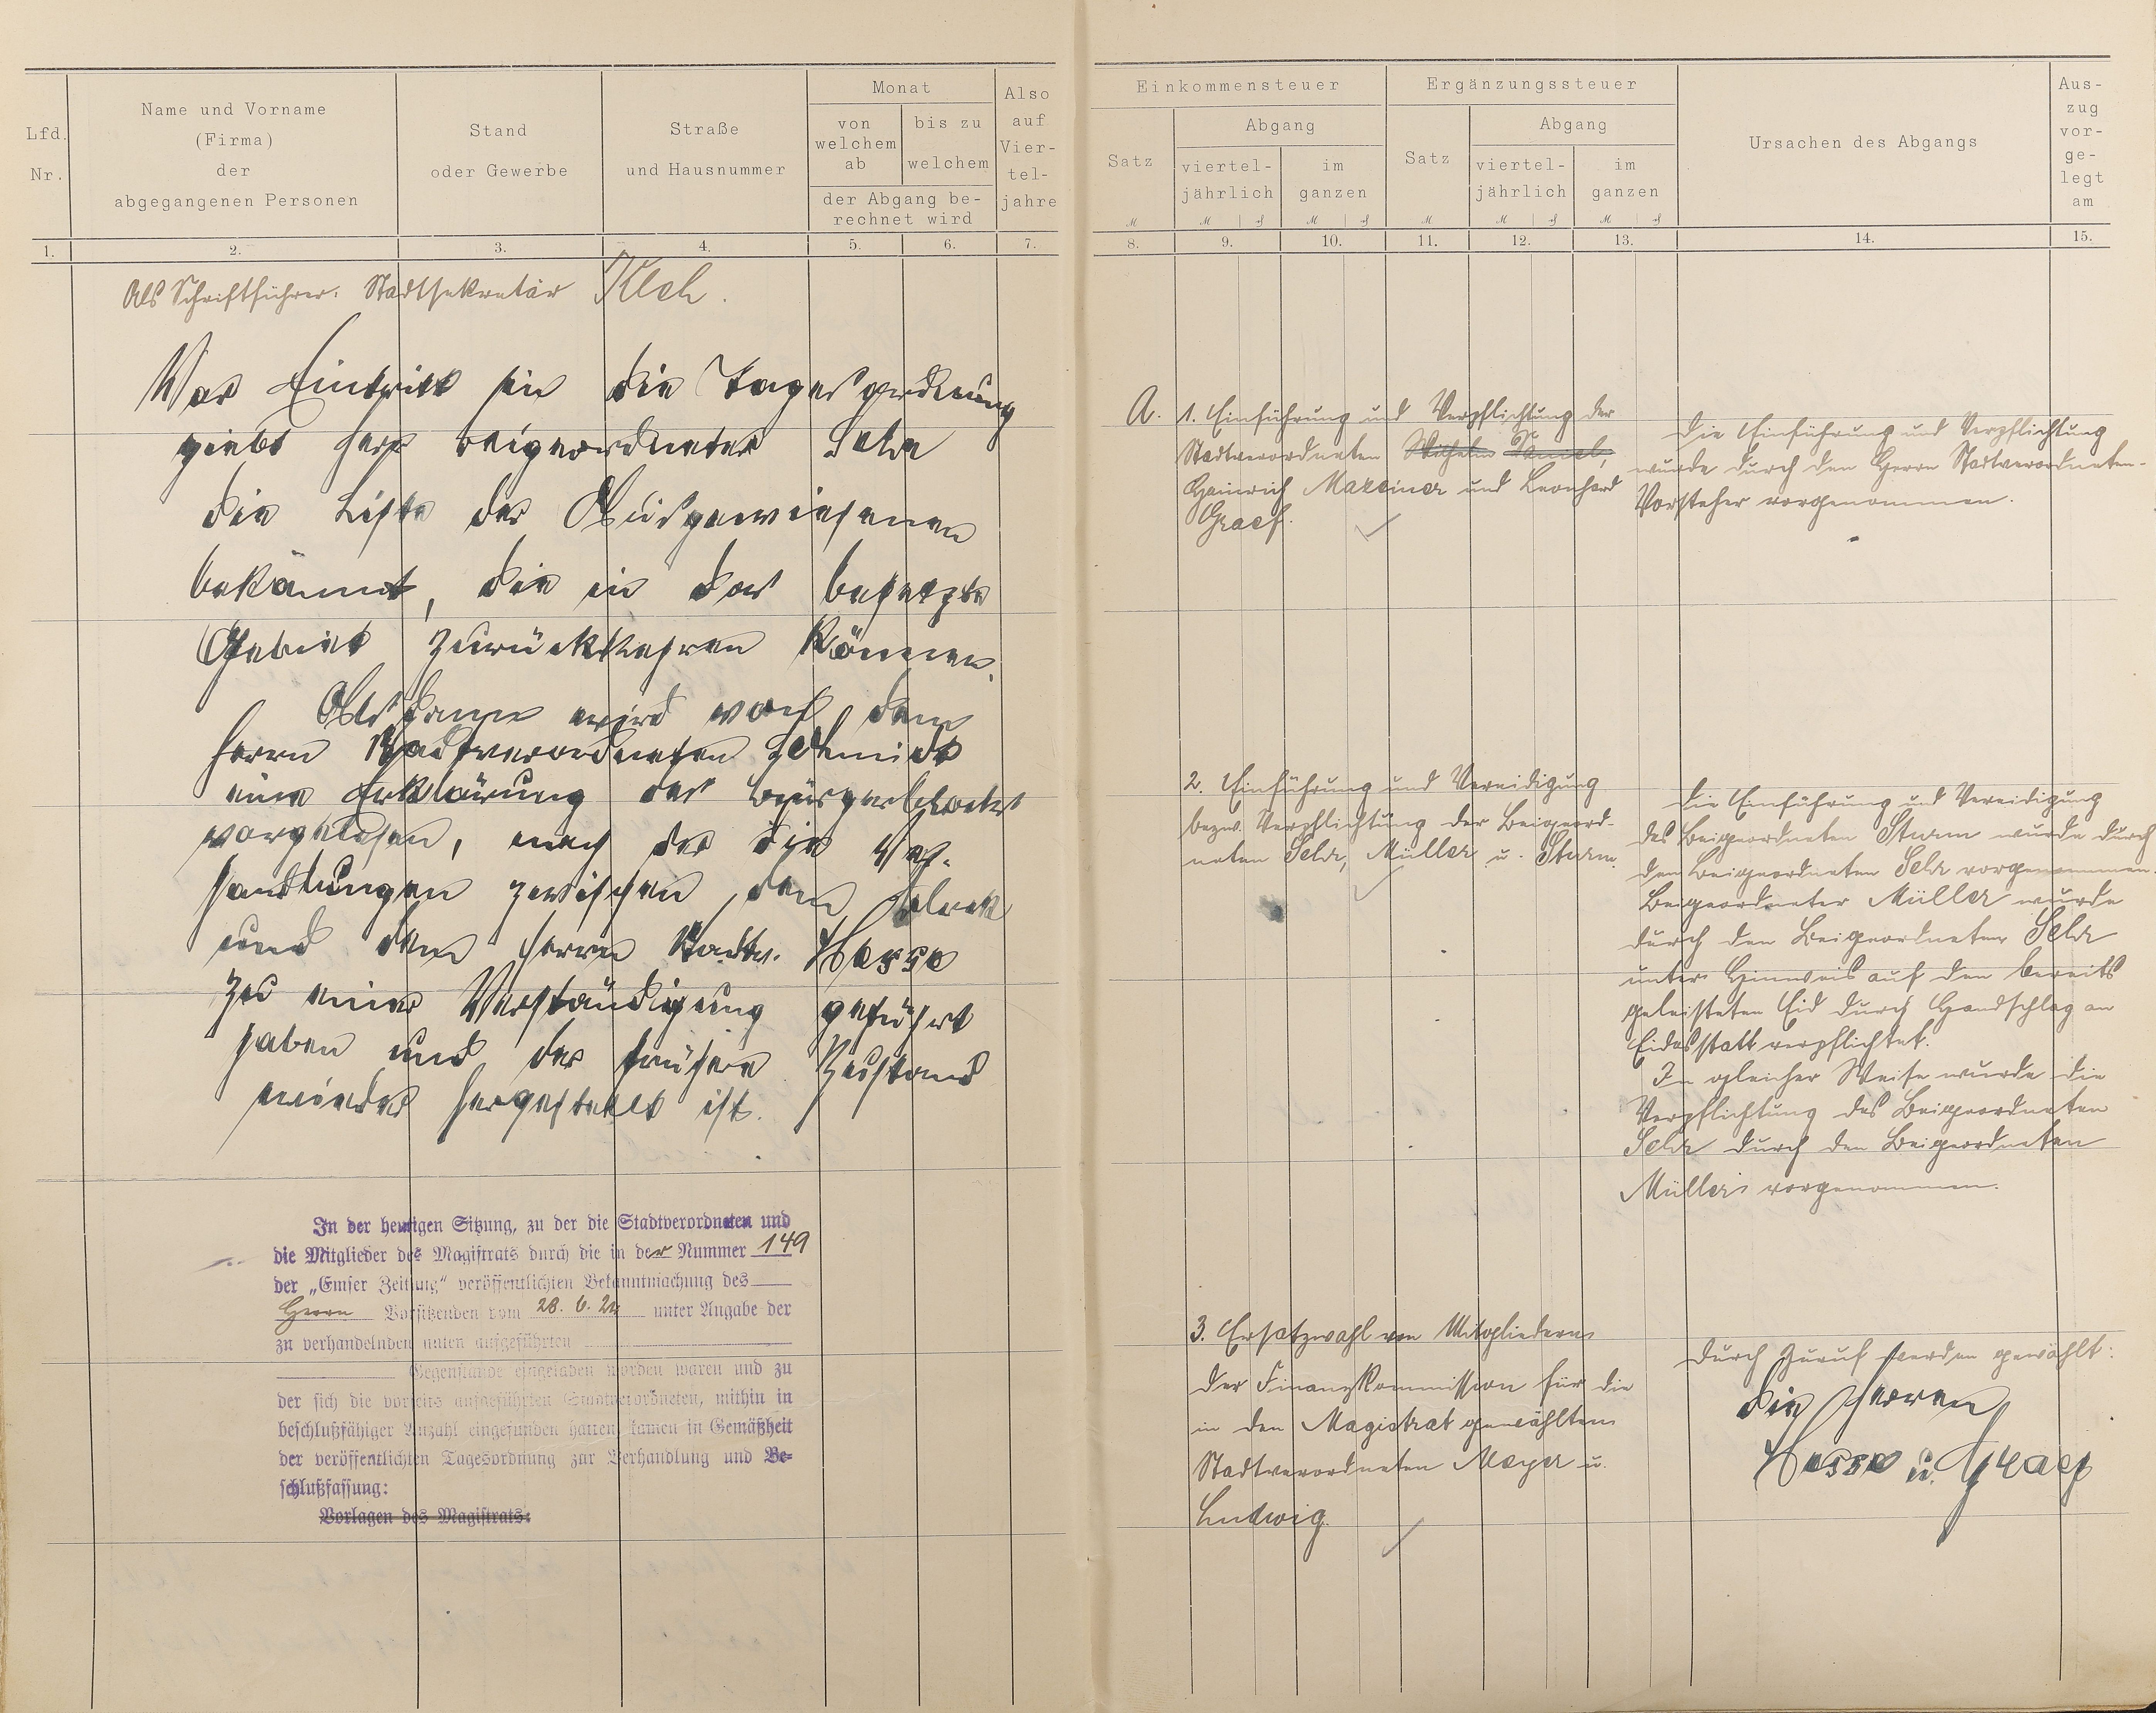 Lfd. Nr.
Name und Vorname
(Firma)
der
abgegangenen Personen
Stand
oder Gewerbe
Straße
und Hausnummer
Monat
von welchem ab
bis zu welchem
der Abgang be-
rechnet wird
Also auf Vier-tel-jahre
1. 2. 3. 4. 5. 6. 7.
Als Schriftführer: Stadtsekretär
Vor Eintritt in die Tagesordnung
giebt Herr Beigeordneter
die Liste der Ausgewiesenen
bekannt, die in das besetzte
Gebiet zurückkehren können.
Alsdann wird von dem
Herrn Stadtverordneten Schmidt
eine Erklärung des
vorgelesen, nach der die Ver-
handlungen zwischen dem
und dem Herrn Stadtv. Hasse
zu einer Verständigung geführt
haben und der frühere Zustand
wieder hergestellt ist.
In der heutigen Sitzung, zu der die Stadtverordneten und
die Mitglieder des Magistrats durch die in der Nummer 149
der „Emser Zeitung" veröffentlichten Bekanntmachung des
Herrn Vorsitzenden vom 28. 6. 24 unter Angabe der
zu verhandelnden unten aufgeführten
Gegenstände eingeladen worden waren und zu
der sich die vorseits aufgeführten Stadtverordneten, mithin in
beschlußfähiger Anzahl eingefunden hatten, kamen in Gemäßheit
der veröffentlichten Tagesordnung zur Verhandlung und Be-
schlußfassung:
Vorlagen des Magistrats:
Einkommensteuer
Satz
Abgang
viertel-jährlich
im ganzen
Ergänzungssteuer
Satz
Abgang
viertel-jährlich
im ganzen
Ursachen des Abgangs
Aus-zug vor-ge-legt am
8. 9. 10. 11. 12. 13. 14. 15.
A. 1. Einführung und Verpflichtung der
Stadtverordneten Wilhelm
Heinrich Maxeiner und Leonhard
Graef.
Die Einführung und Verpflichtung
wurde durch den Herrn Stadtverordneten-
Vorsteher vorgenommen.
2. Einführung und Vereidigung
bezw. Verpflichtung der Beigeord-
neten Selde, Müller u. Sturm.
Die Einführung und Vereidigung
des Beigeordneten Sturm wurde durch
den Beigeordneten Selde vorgenommen.
Beigeordneter Müller wurde
durch den Beigeordneten Selde
unter Hinweis auf den bereits
geleisteten Eid durch Handschlag an
Eidesstatt verpflichtet.
In gleicher Weise wurde die
Verpflichtung des Beigeordneten
Selde durch den Beigeordneten
Müller vorgenommen.
3. Ersatzwahl von Mitgliedern
der Finanzkommission für die
in den Magistrat gewählten
Stadtverordneten Meyer u.
Ludwig.
Durch Zuruf werden gewählt:
die Herren
Hasse u. Graef